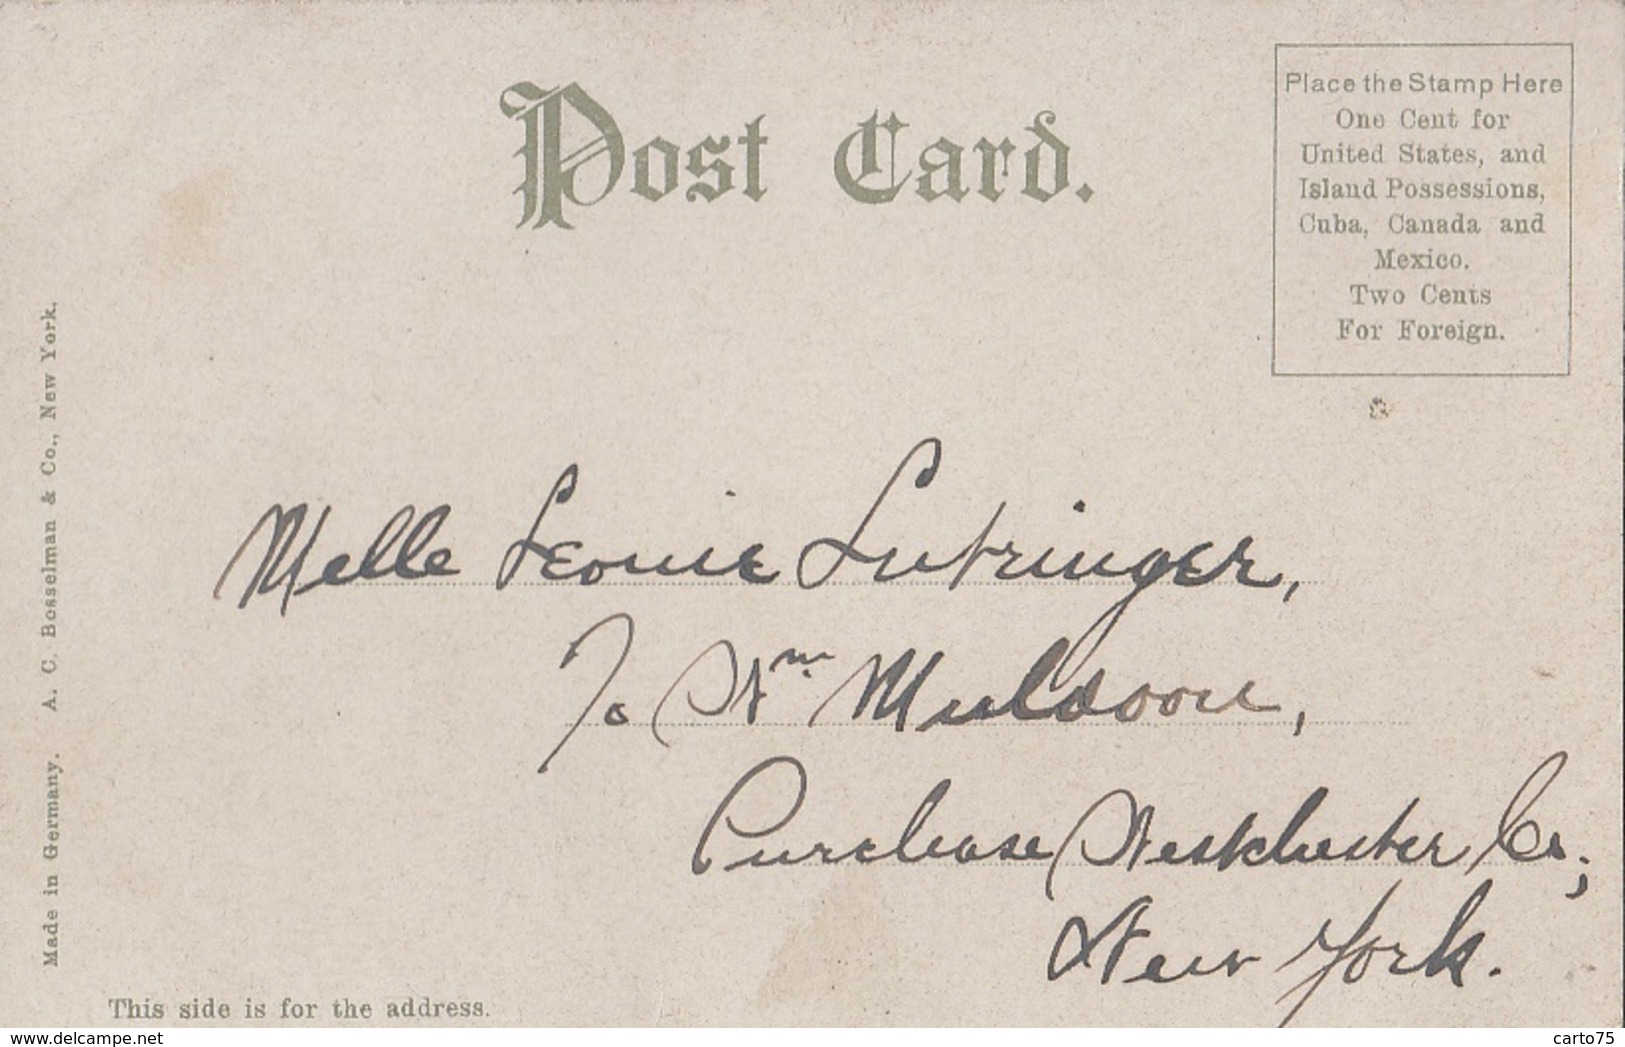 Post Card.
Place the Stamp Here
One Cent for
United States, and
Island Possessions,
Cuba, Canada and
Mexico.
Two Cents
For Foreign.
Melle Leonie Lutringer,
To Wm Muldoon,
Purchase Westchester Co;
New York.
Made in Germany. A. C. Bosselman & Co., New York.
This side is for the address.
www.delcampe.net
carto75